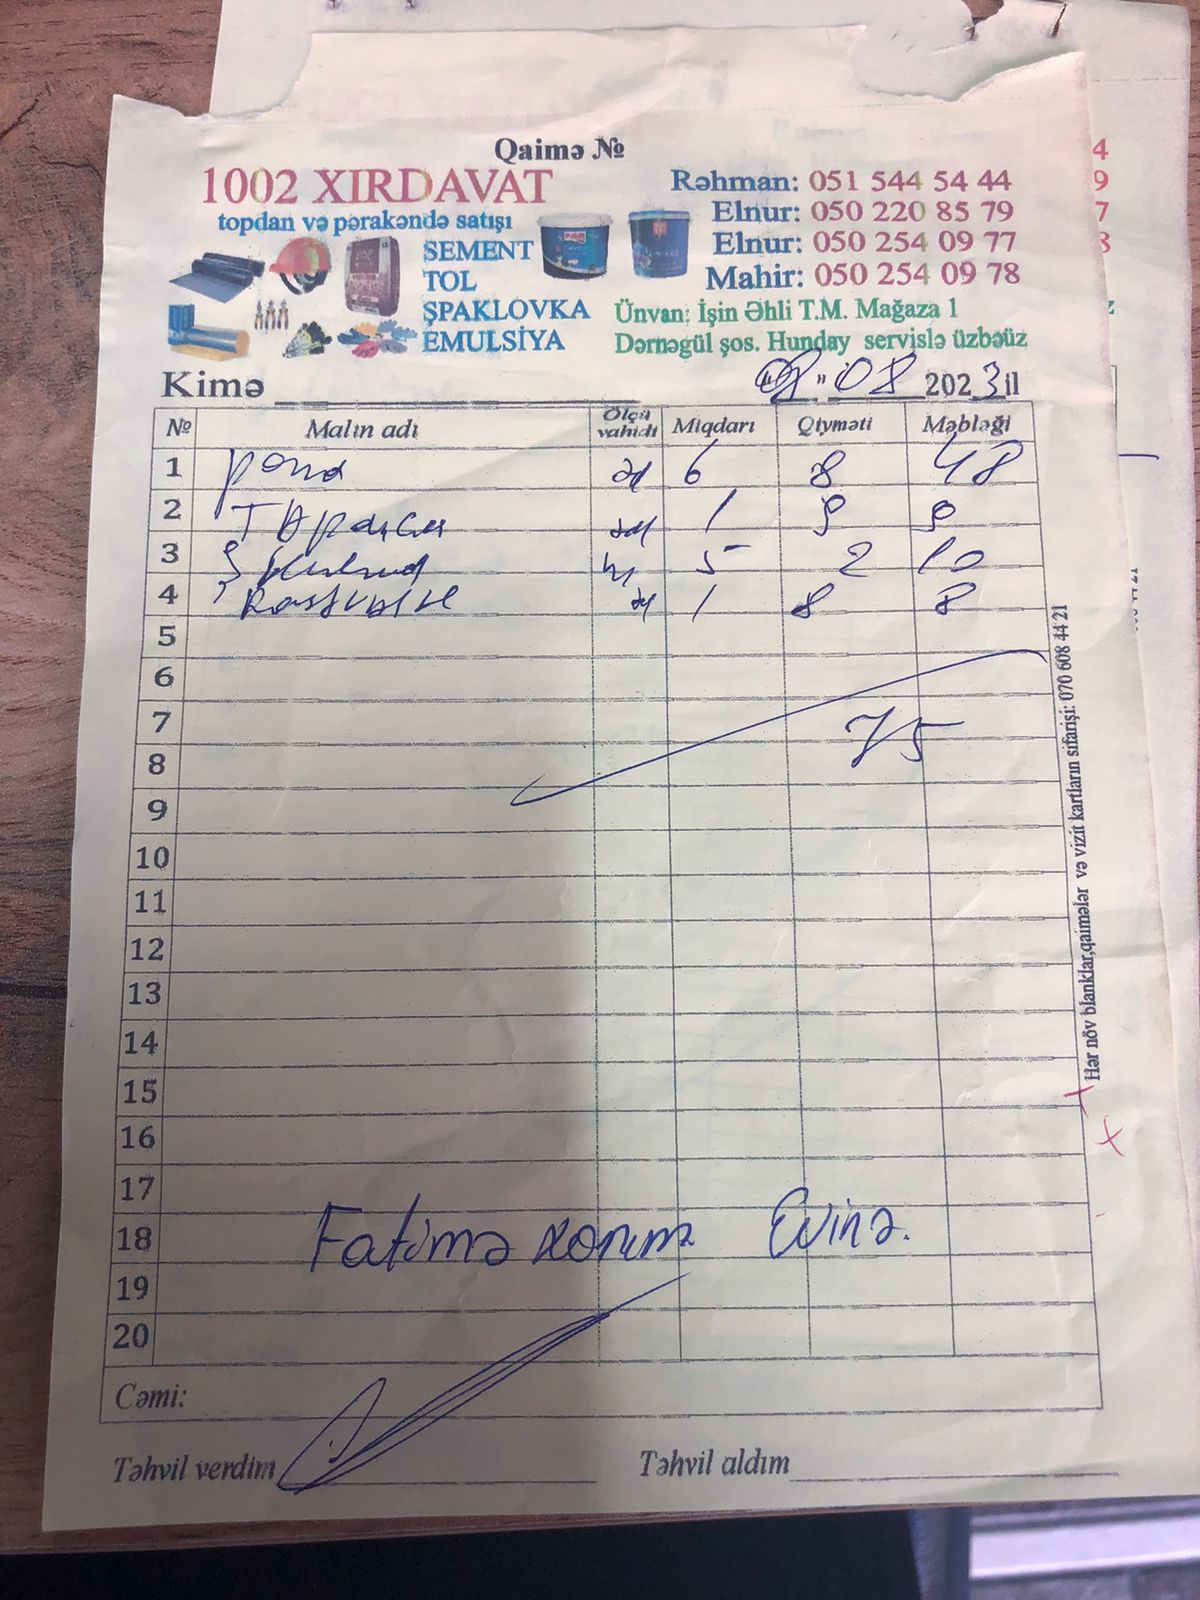 Qaimə №
1002 XIRDAVAT
topdan və pərakəndə satışı
SEMENT
TOL
ŞPAKLOVKA
EMULSİYA
Rəhman: 051 544 54 44
Elnur: 050 220 85 79
Elnur: 050 254 09 77
Mahir: 050 254 09 78
Ünvan: İşin Əhli T.M. Mağaza 1
Dərnəgül şos. Hunday servislə üzbəüz
Kimə "08" 08 2023 il
№ Malın adı Ölçü vahidi Miqdarı Qiyməti Məbləği
1 pena əd 6 8 48
2 əd 1 9 9
3 5 2 10
4 əd 1 8 8
5
6
7 75
8
9
10
11
12
13
14
15
16
17
18 Fatimə xanımın Evinə.
19
20
Cəmi:
Təhvil verdim Təhvil aldım
Hər növ blanklar,qaimələr və vizit kartların sifarişi: 070 608 44 21
4
9
7
8
z